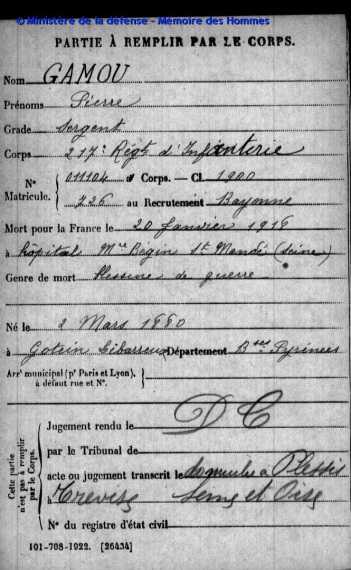 © Ministère de la défense - Mémoire des Hommes
PARTIE À REMPLIR PAR LE CORPS.
Nom GAMOU
Prénoms Pierre
Grade Sergent
Corps 217e Régt d'Infanterie
N° Matricule. 011104 au Corps. — Cl. 1900
226 au Recrutement Bayonne
Mort pour la France le 20 Janvier 1916
à hôpital Mre Bégin St Mandé (Seine)
Genre de mort Blessure de guerre
Né le 2 Mars 1880
à Gotein Libarrenx Département Bses Pyrénées
Arrt municipal (pr Paris et Lyon), à défaut rue et N°.
DC
Cette partie n'est pas à remplir par le Corps.
Jugement rendu le
par le Tribunal de
acte ou jugement transcrit le à Plessis
à Trévise Seine et Oise
N° du registre d'état civil
101-708-1922. [26434]